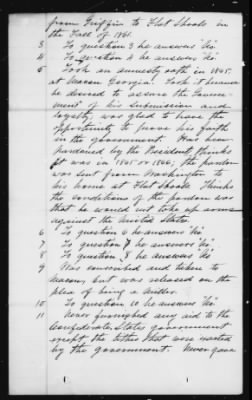 from Griffin to Flat Shoals in
the Fall of 1861.
3 To question 3 he answers "No"
4 To question 4 he answers "No"
5 Took an amnesty oath in 1865
at Macon Georgia. Took it because
he desired to assure the Govern-
ment of his submission and
loyalty; was glad to have the
opportunity to prove his faith
in the government. Was been
pardoned by the President, thinks
it was in 1865 or 1866; the pardon
was sent from Washington to
his home at Flat Shoals. Thinks
the conditions of the pardon was
that he would not take up arms
against the United States.
6 To question 6 he answers "No"
7 To question 7 he answers "No"
8 To question 8 he answers "No"
9 Was conscribed and taken to
Macon, but was released on the
plea of being a
10 To question 10 he answers "No"
11 Never furnished any aid to the
Confederate States government
except the tithes that were wanted
by the government. Never gave